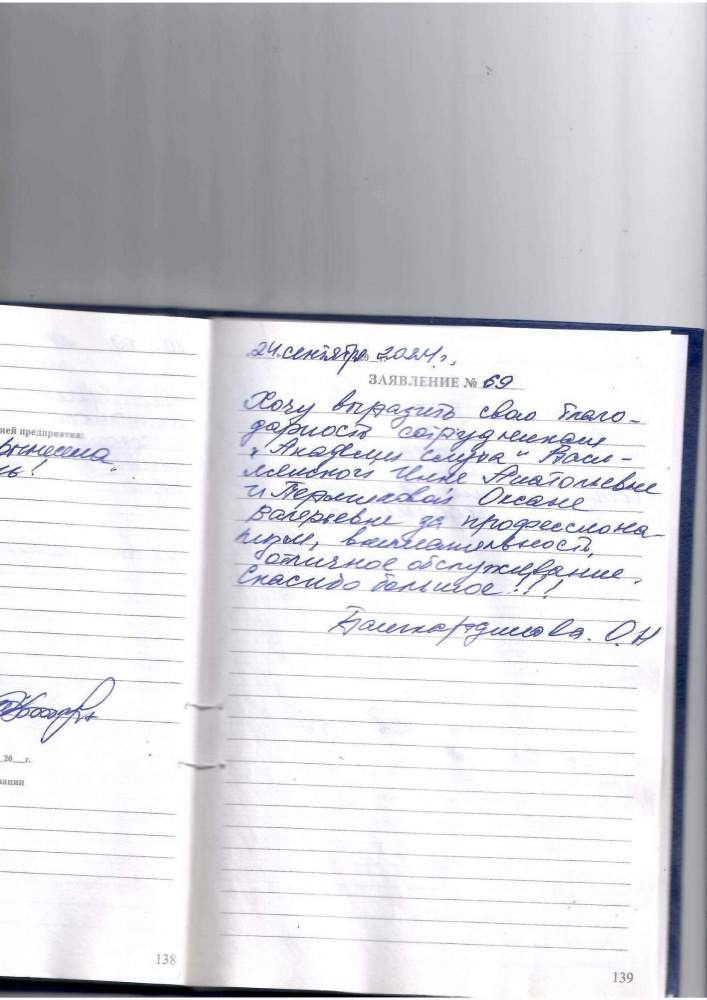 ней предприятия:
вынесена
ь!
20 г.
зации
138
24 сентября 2024 г.
ЗАЯВЛЕНИЕ № 69
Хочу выразить свою благо-
дарность сотрудникам
"Академии слуха"
Анатольевне
и Пермяковой Оксане
Валерьевне за профессиона-
лизм, внимательность,
отличное обслуживание.
Спасибо большое!!!
О.Н
139